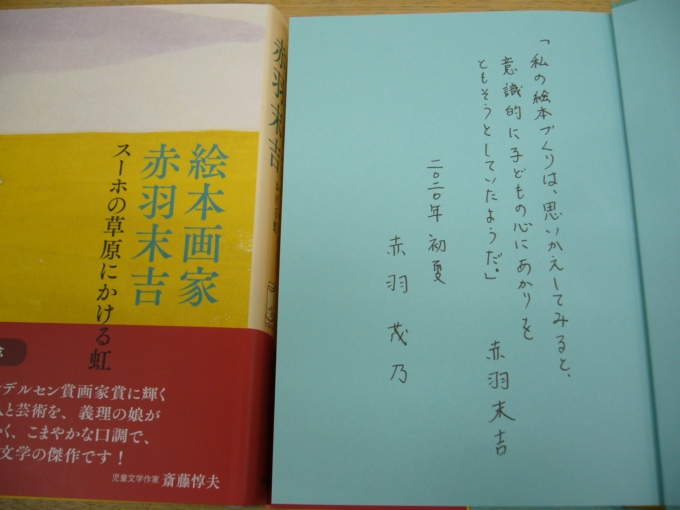 絵本画家
赤羽末吉
スーホの草原にかける虹
赤羽末吉
デルセン賞画家賞に輝く
人と芸術を、義理の娘が
く、こまやかな口調で、
文学の傑作です!
児童文学作家 斎藤惇夫
「私の絵本づくりは、思いかえしてみると、
意識的に子どもの心にあかりを
ともそうとしていたようだ。」
赤羽末吉
二〇二〇年 初夏
赤羽 茂乃